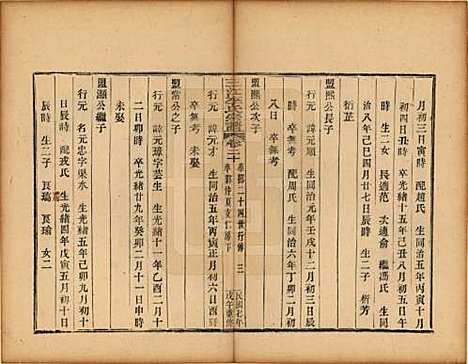 月初三日寅時 配趙氏 生同治五年丙寅十月
初四日卯時 卒光緒十五年己丑八月初五日午
時 生二女 長適范 次適俞 繼馮氏 生同
治八年己巳四月廿七日辰時 生二子 衍芳
衍芷
盟熙公長子
行元 諱元 生同治元年壬戌十二月初
八日 卒無考 配周氏 同治六年丁卯二月初
盟熙公次子
行元 諱元才 生同治五年丙寅正月初六日酉
時 卒無考 未娶
三江李氏宗譜 卷二十 二十四世行傳 三
民國七年戊午重修
盟常公之子
行元 諱元璋字芸生 生同治十一年乙酉二月十
二日卯時 卒光緒廿九年癸卯二月十一日申時
未娶
盟灝公繼子
行元 名元忠字渠水 生光緒五年己卯九月初十
日辰時 配戎氏 生光緒四年戊寅五月初十
辰時 生二子 長瑞 長瑜 女二